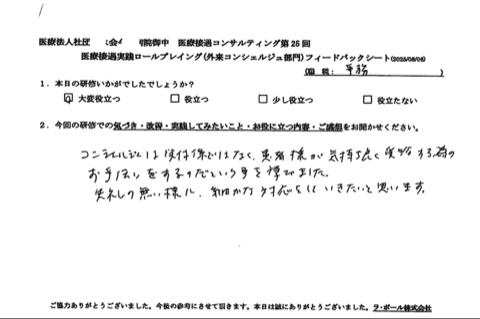 医療法人社団 会 院御中 医療接遇コンサルティング第25回
医療接遇実践ロールプレイング(外来コンシェルジュ部門)フィードバックシート(2025/06/05)
(職種: 事務 )
1.本日の研修いかがでしたでしょうか?
☑ 大変役立つ □ 役立つ □ 少し役立つ □ 役立たない
2.今回の研修での気づき・改善・実践してみたいこと・お役に立つ内容・ご感想をお聞かせください。
コンシェルジュは受付係ではなく、患者様が気持ち良く受診する為の
お手伝いをするのだという事を学びました。
失礼の無い様に、細かな対応をしていきたいと思います。
ご協力ありがとうございました。今後の参考にさせて頂きます。本日は誠にありがとうございました。ラ・ポール株式会社